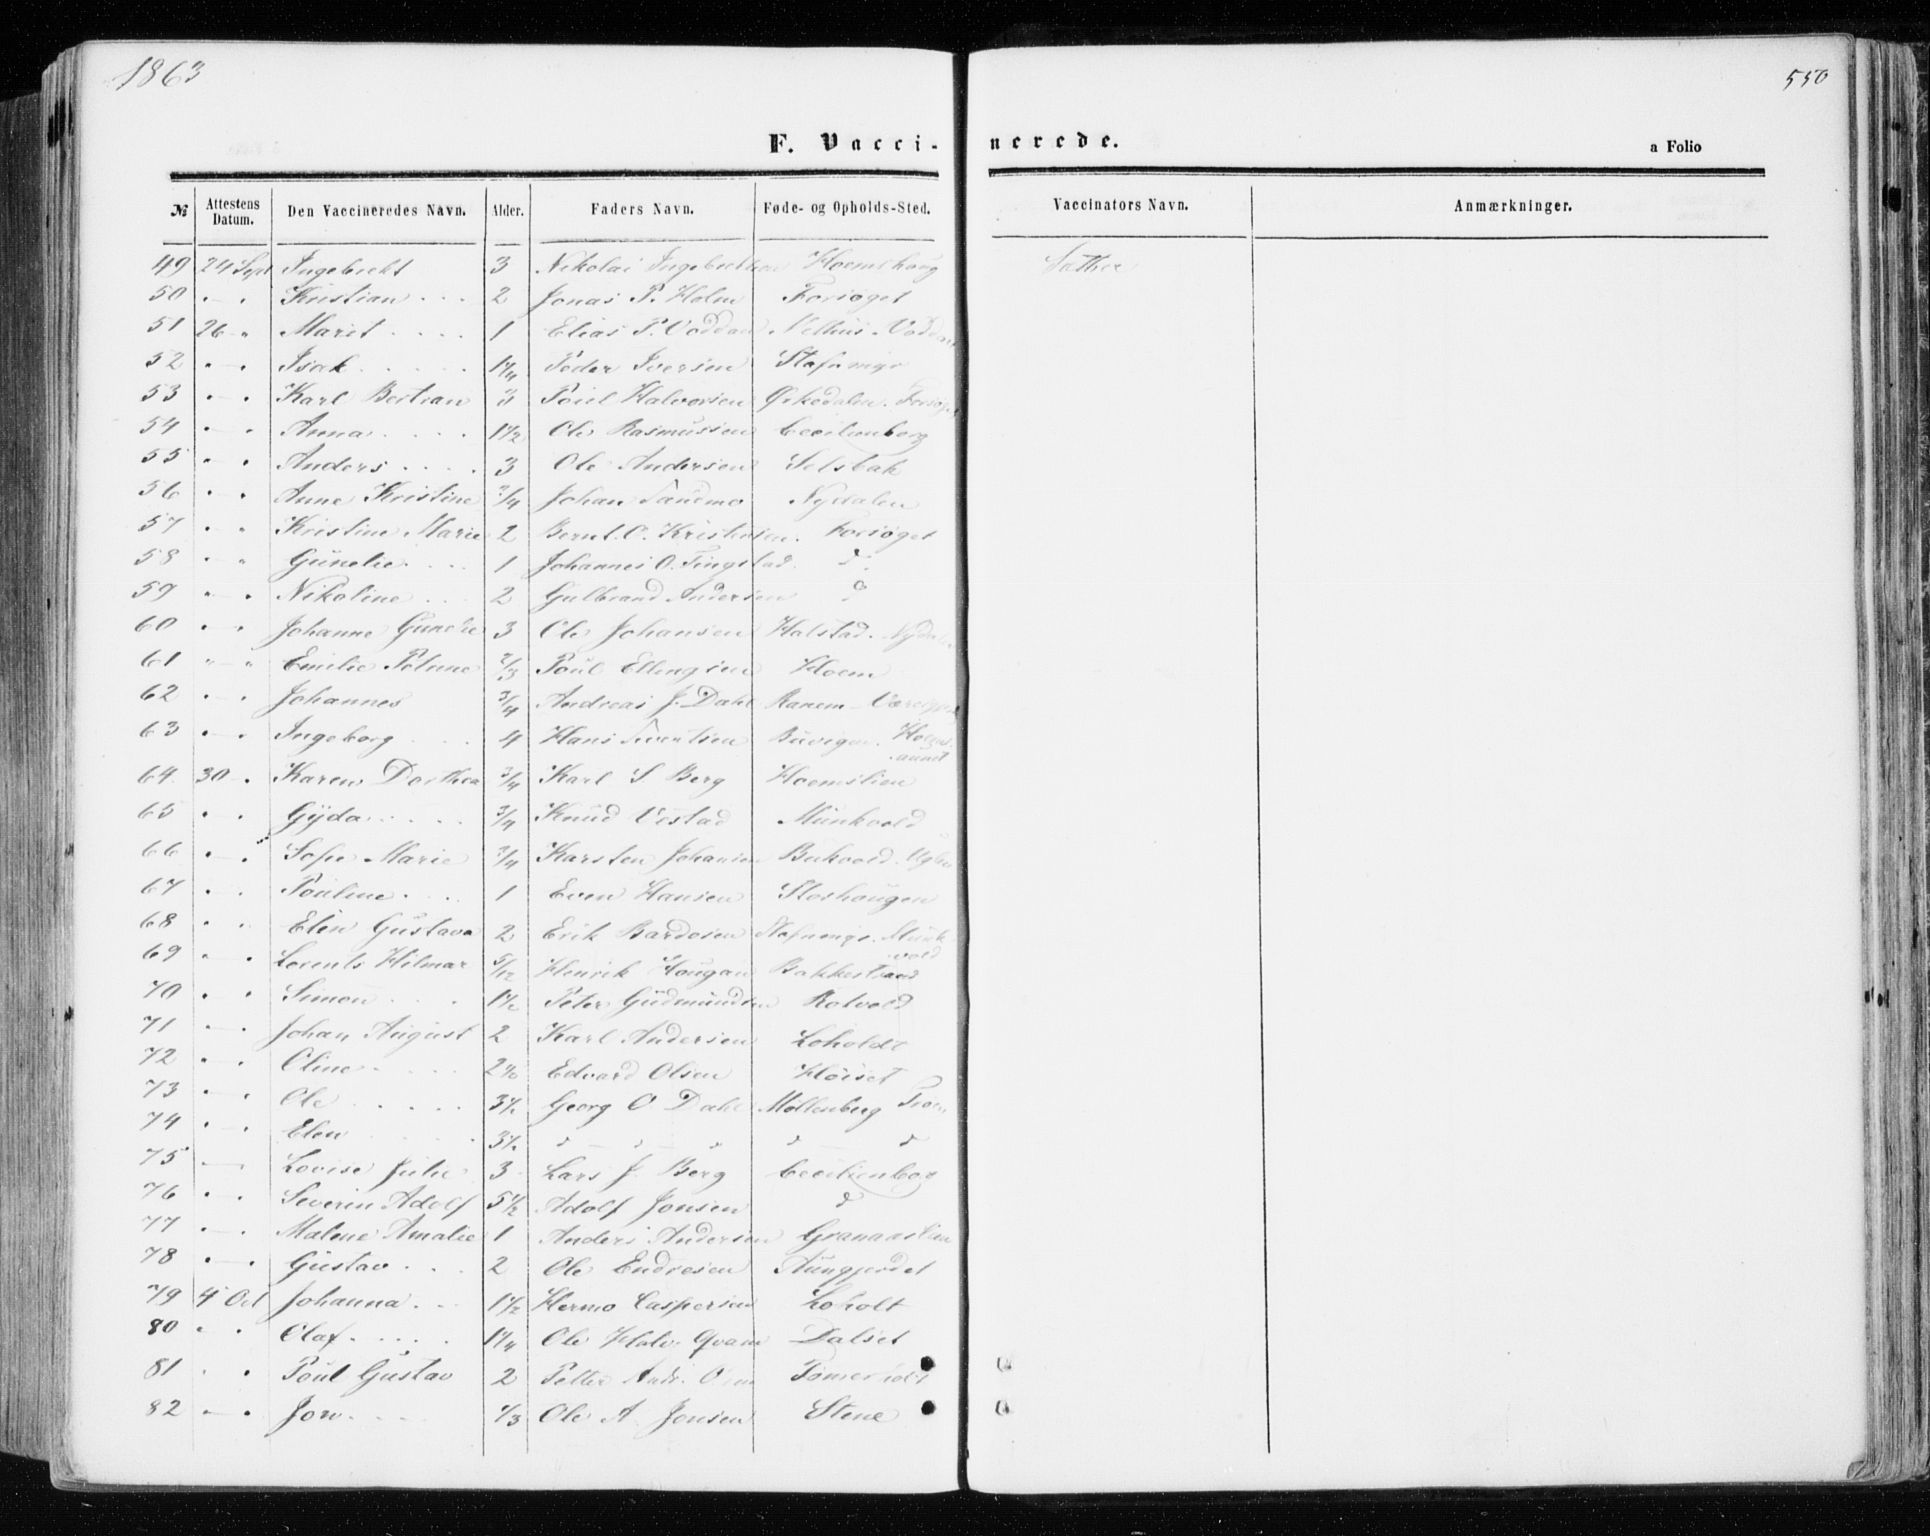 1863
550
F. Vaccinerede.
a Folio
№ Attestens Datum. Den Vaccineredes Navn. Alder. Faders Navn. Føde- og Opholds-Sted. Vaccinators Navn. Anmærkninger.
49 24 Sept Ingebrekt 3 Nikolai Ingebretsen Hoemshoug Sather
50 " " Kristian 2 Jonas P. Holm Forsøget
51 26 " Marit 1 Elias P. Voddan Melhus
52 " " Isak 1 1/4 Peder Iversen Stafnmyr
53 " " Karl Bertran Poüel Halvorsen Ørkedalen. Forsøget
54 " " Anna 1 1/2 Ole Rasmussen Cecilienborg
55 " " Anders 3 Ole Andersen Selsbak
56 " " Anne Kristine 3/4 Johan Sandmo Nydalen
57 " " Kristine Marie 2 Bernt. O. Kristensen. Forsøget
58 " " Günelie 1 Johannes O. Tingstad. d.
59 " " Nikoline 2 Gulbrand Andersen d
60 " " Johanne Gunelie 3 Ole Johansen Halstad. Nydalen
61 " " Emilie Petrine 2/3 Poül Ellingsen Hoem
62 " " Johannes 3/4 Andreas J. Dahl Ranem
63 " " Ingeborg 4 Hans Sivertsen Buvigen.
64 30 " Karen Dorthea 3/4 Karl S Berg Hoemslien
65 " " Gÿda 3/4 Knüd Vestad Münkvold
66 " " Sofie Marie 3/4 Karsten Johansen
67 " " Poüline 1 Even Hansen Floshoügen
68 " " Elen Güstava 2 Erik Bardosen Stafnengs. Münkvold
69 " " Lorents Hilmar 5/12 Henrik Hoügan Bakkestrand
70 " " Simon 1 1/2 Peter Güdmündsen Rotvold
71 " " Johan August 2 Karl Andersen Loholdt
72 " " Oline Edvard Olsen Høiset
73 " " Ole 3 1/2 Georg O Dahl Møllenberg
74 " " Elen 3 1/2 d d d d d
75 " Lovise Julie 3 Lars J. Berg Cecilienborg
76 " " Severin Adolf 5 1/2 Adolf Jonsen d
77 " " Malene Amalie 1 Anders Andersen Granaaslien
78 " " Güstav 2 Ole Endresen Aungjerdet
79 4 Oct Johanna 1 1/2 Hermo Caspersen Loholt
80 " " Olaf 1 1/4 Ole Halv. Qvam Dalset
81 " " Poül Güstav 2 Petter Andr.
82 " " Jon 1/3 Ole A. Jonsen Stene